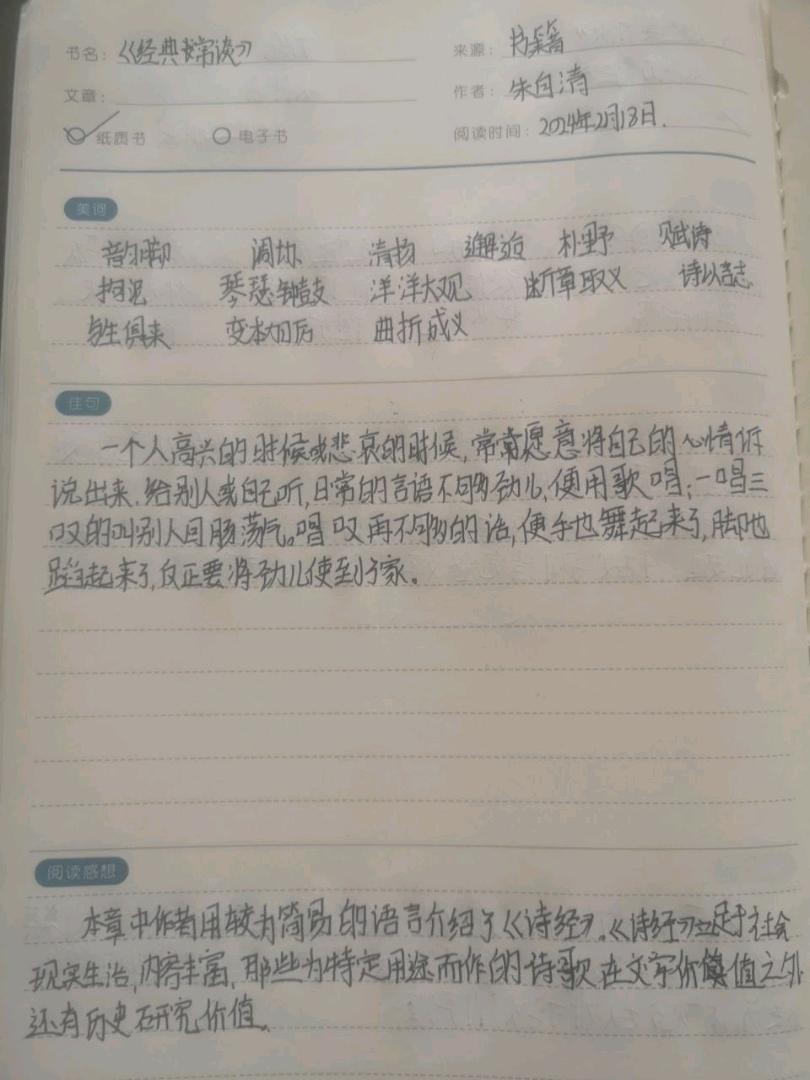 书名：《经典常谈》
来源：书籍
文章：
作者：朱自清
纸质书 电子书
阅读时间：2024年2月13日.
美词
韵脚 调协 清扬 邂逅 朴野 赋诗
拘泥 琴瑟钟鼓 洋洋大观 断章取义 诗以言志
与生俱来 变本加厉 曲折成义
佳句
一个人高兴的时候或悲哀的时候,常常愿意将自己的心情诉
说出来.给别人或自己听,日常的言语不够劲儿,便用歌唱;一唱三
叹的叫别人回肠荡气。唱叹再不够的话,便手也舞起来了,脚也
蹈起来了,反正要将劲儿使到了家。
阅读感想
本章中作者用较为简易的语言介绍了《诗经》。《诗经》立足于社会
现实生活,内容丰富,那些为特定用途而作的诗歌在文学价值之外
还有历史研究价值。